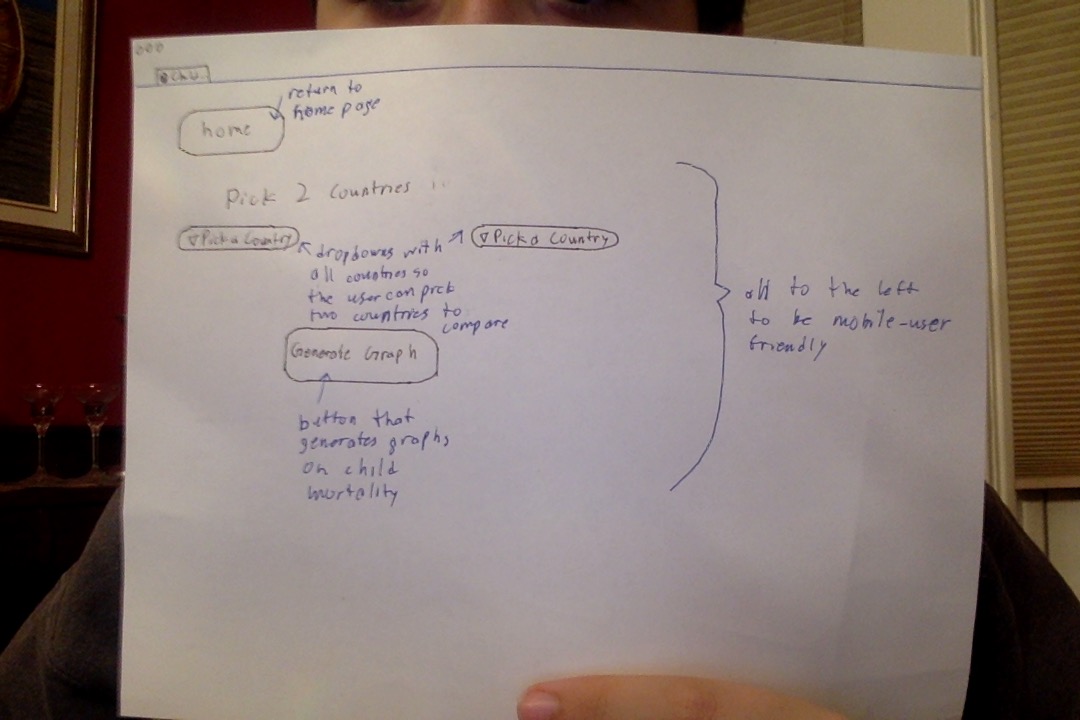 return to
home page
home
Pick 2 Countries ...
▽Pick a Country
▽Pick a Country
dropdowns with
all countries so
the user can pick
two countries to
compare
Generate Graph
button that
generates graphs
on child
mortality
all to the left
to be mobile-user
friendly